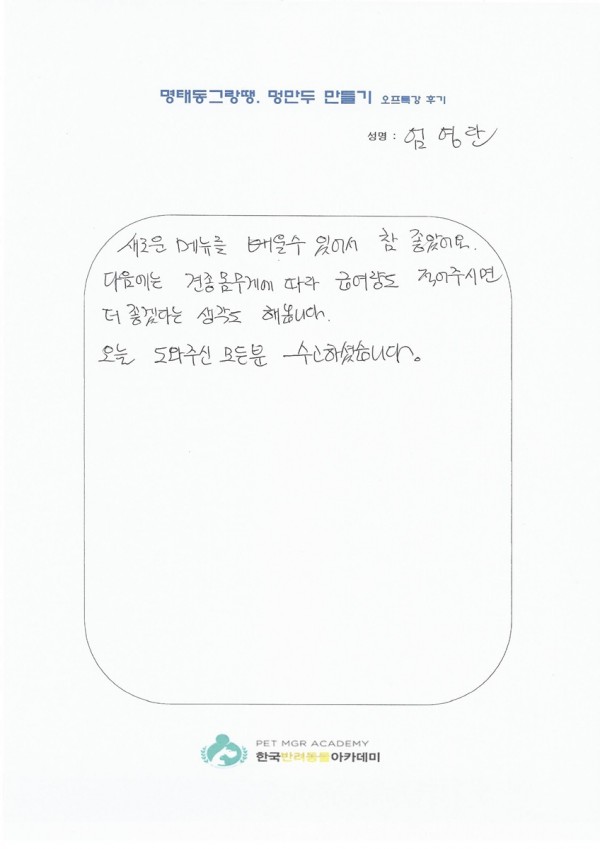 명태동그랑땡. 멍만두 만들기 오프특강 후기
성명 : 엄영란
새로운 메뉴를 배울수 있어서 참 좋았어요.
다음에는 견종몸무게에 따라 급여량도 적어주시면
더 좋겠다는 생각도 해봅니다.
오늘 도와주신 모든분 수고하셨습니다.
PET MGR ACADEMY
한국반려동물아카데미